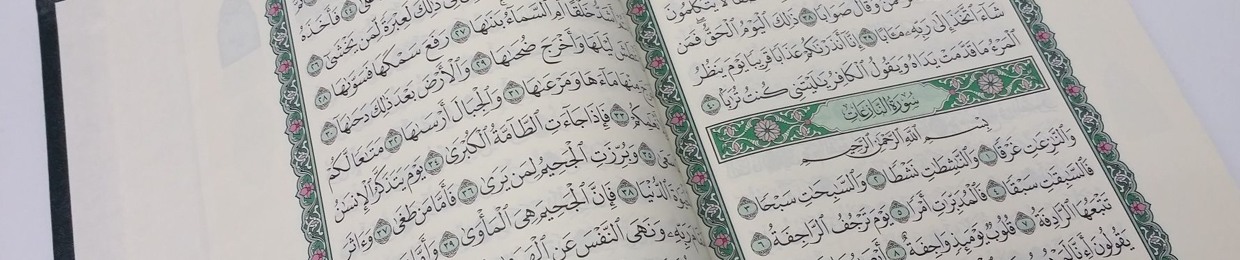 شَاءَ ٱتَّخَذَ إِلَىٰ رَبِّهِۦ مَـَٔابًا ٣٩ إِنَّآ أَنذَرْنَٰكُمْ عَذَابًا قَرِيبًا يَوْمَ يَنظُرُ
ٱلْمَرْءُ مَا قَدَّمَتْ يَدَاهُ وَيَقُولُ ٱلْكَافِرُ يَٰلَيْتَنِى كُنتُ تُرَٰبًۢا ٤٠
سُورَةُ النَّازِعَاتِ
بِسْمِ ٱللَّهِ ٱلرَّحْمَٰنِ ٱلرَّحِيمِ
وَٱلنَّٰزِعَٰتِ غَرْقًا ١ وَٱلنَّٰشِطَٰتِ نَشْطًا ٢ وَٱلسَّٰبِحَٰتِ سَبْحًا ٣
فَٱلسَّٰبِقَٰتِ سَبْقًا ٤ فَٱلْمُدَبِّرَٰتِ أَمْرًا ٥ يَوْمَ تَرْجُفُ ٱلرَّاجِفَةُ ٦
تَتْبَعُهَا ٱلرَّادِفَةُ ٧ قُلُوبٌ يَوْمَئِذٍ وَاجِفَةٌ ٨
يَقُولُونَ
ذَٰلِكَ لَعِبْرَةً لِّمَن يَخْشَىٰٓ ٢٦
خَلْقًا أَمِ ٱلسَّمَآءُ بَنَىٰهَا ٢٧ رَفَعَ سَمْكَهَا فَسَوَّىٰهَا ٢٨
لَيْلَهَا وَأَخْرَجَ ضُحَىٰهَا ٢٩ وَٱلْأَرْضَ بَعْدَ ذَٰلِكَ دَحَىٰهَآ ٣٠
مِنْهَا مَآءَهَا وَمَرْعَىٰهَا ٣١ وَٱلْجِبَالَ أَرْسَىٰهَا ٣٢ مَتَٰعًا لَّكُمْ
٣٣ فَإِذَا جَآءَتِ ٱلطَّآمَّةُ ٱلْكُبْرَىٰ ٣٤ يَوْمَ يَتَذَكَّرُ ٱلْإِنسَٰنُ
٣٥ وَبُرِّزَتِ ٱلْجَحِيمُ لِمَن يَرَىٰ ٣٦ فَأَمَّا مَن طَغَىٰ ٣٧ وَءَاثَرَ
ٱلدُّنْيَا ٣٨ فَإِنَّ ٱلْجَحِيمَ هِىَ ٱلْمَأْوَىٰ ٣٩
رَبِّهِۦ وَنَهَى ٱلنَّفْسَ عَنِ